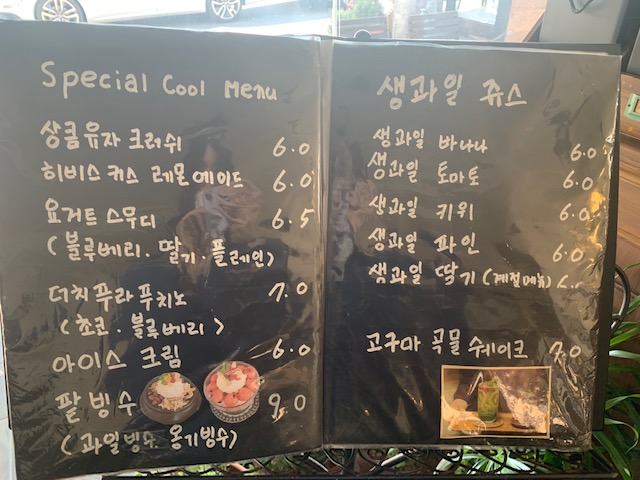 Special Cool Menu
상큼유자 크러쉬 6.0
히비스커스 레몬에이드 6.0
요거트스무디 6.5
(블루베리.딸기.플레인)
더치푸라푸치노 7.0
(초코.블루베리)
아이스크림 6.0
팥빙수 9.0
(과일빙수 옹기빙수)
생과일 쥬스
생과일 바나나 6.0
생과일 토마토 6.0
생과일 키위 6.0
생과일 파인 6.0
생과일 딸기(계절메뉴)
고구마 곡물 쉐이크 7.0